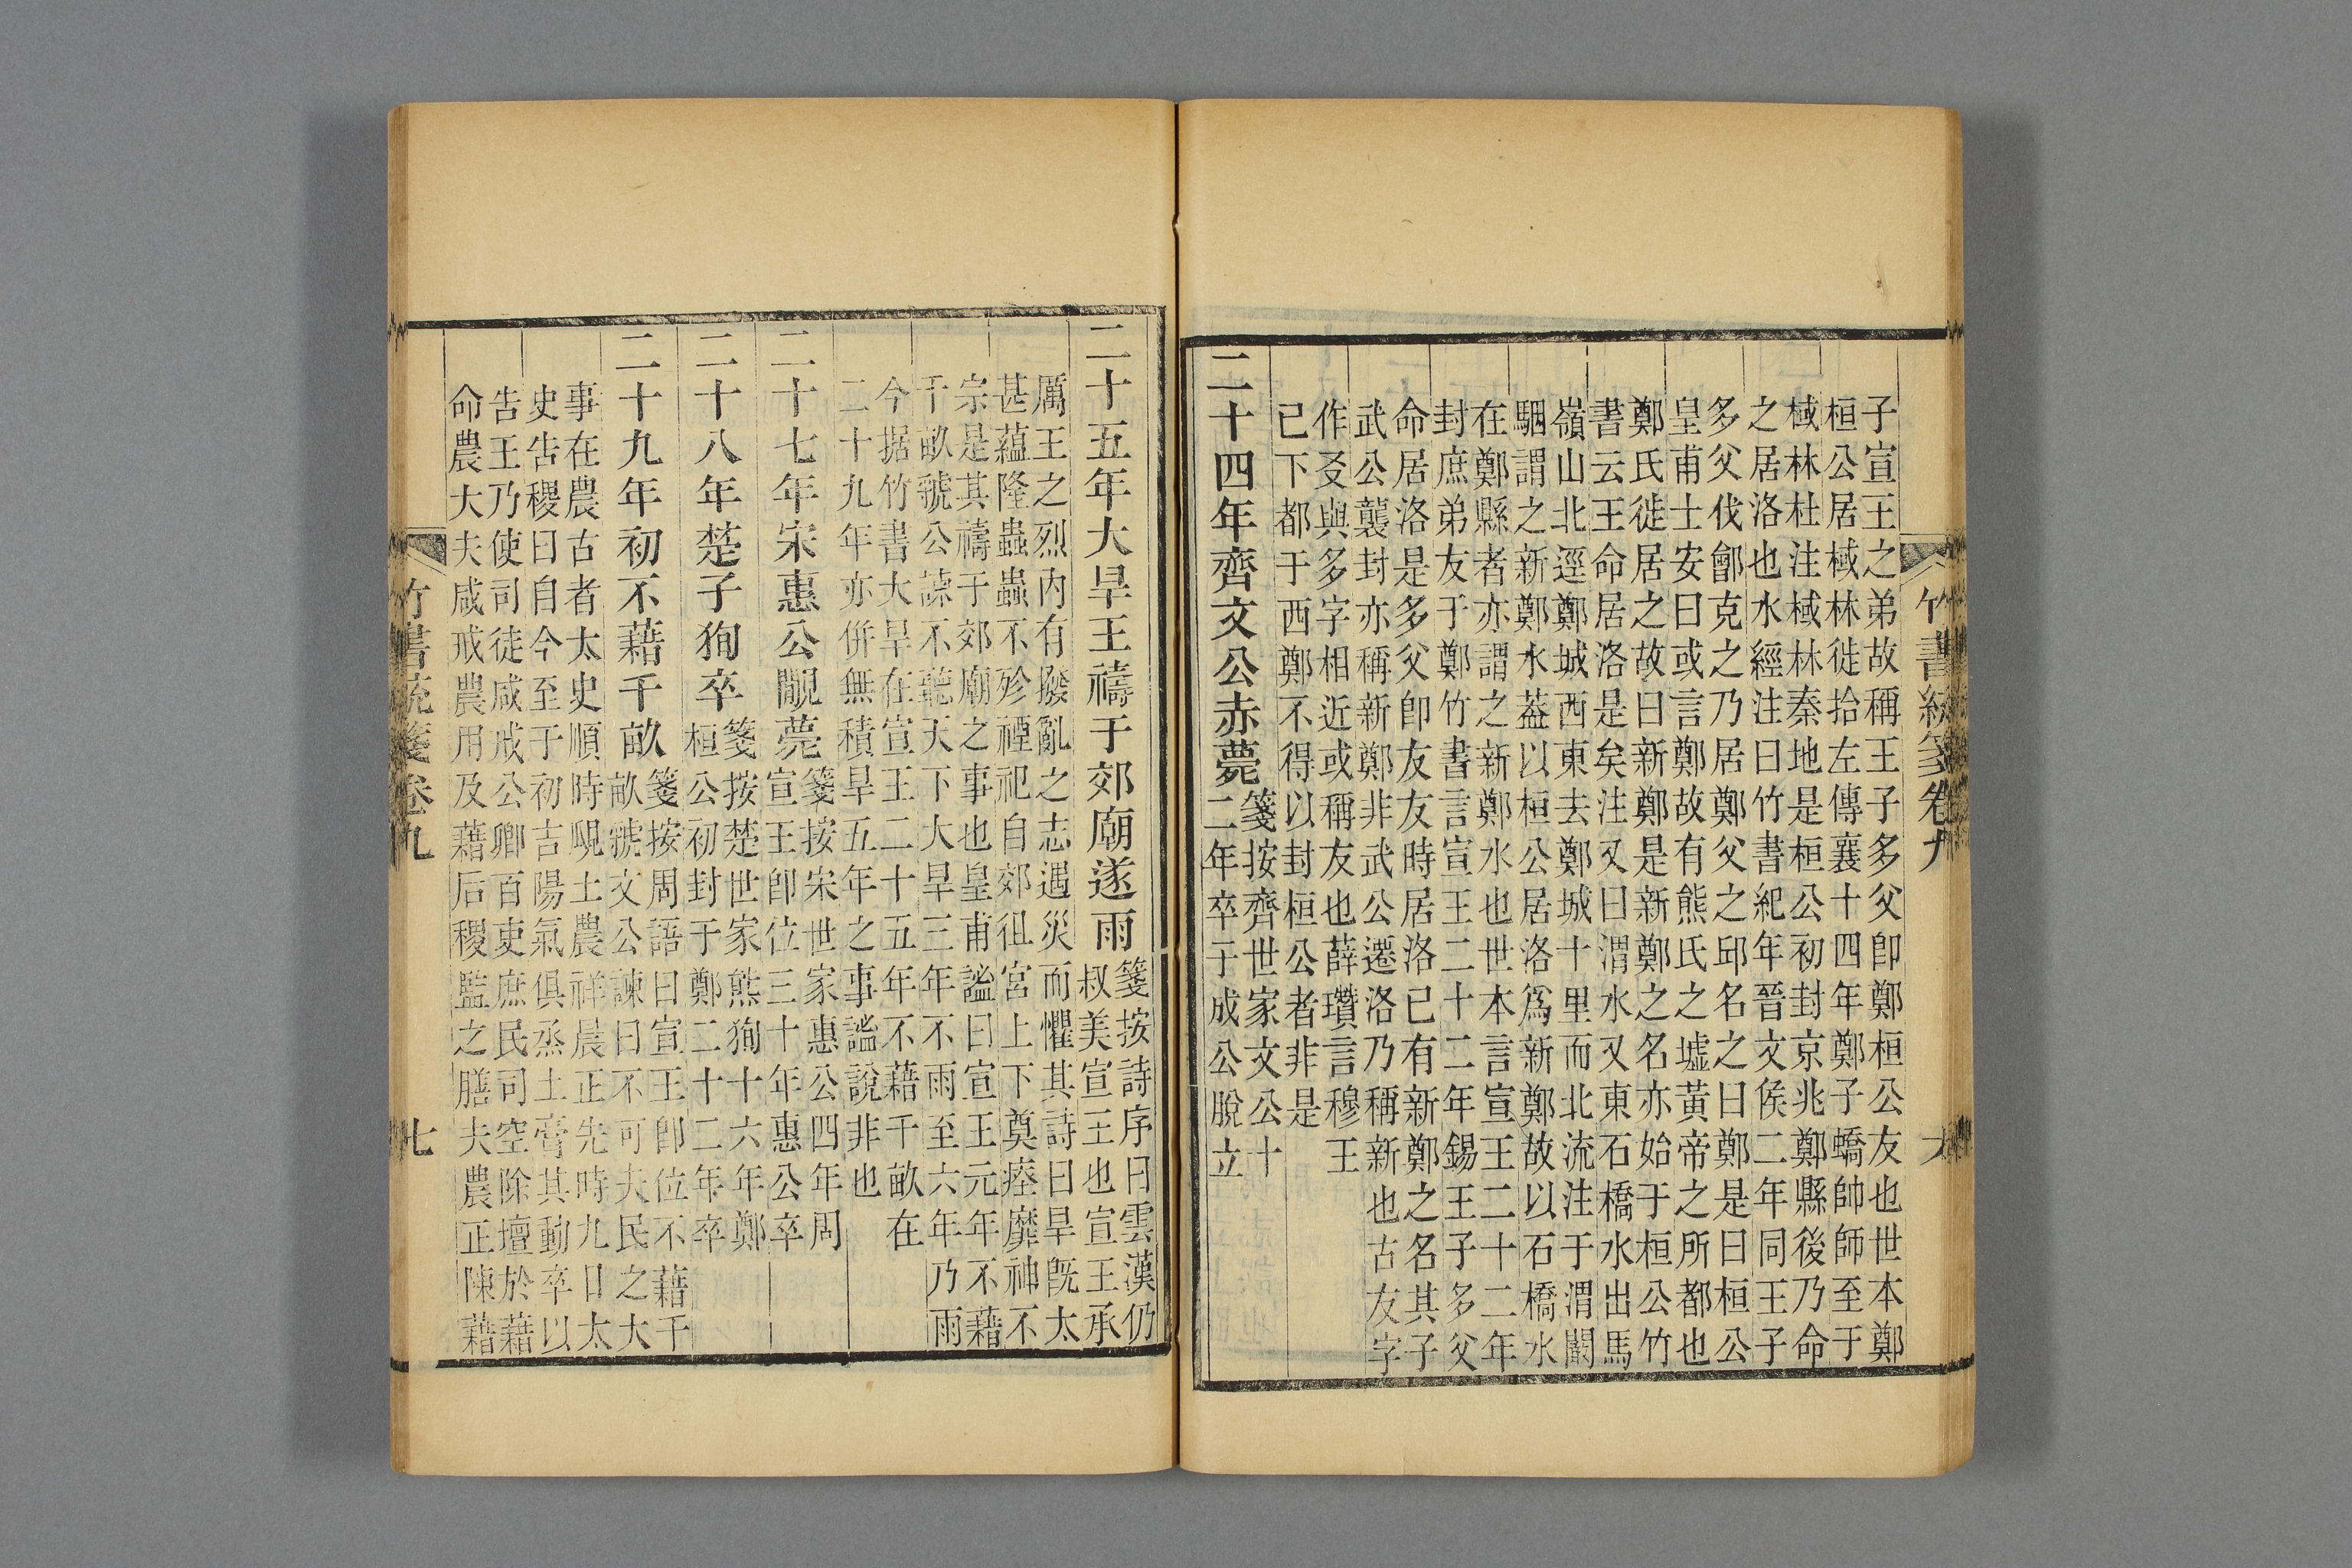 竹書統箋卷九 六
子宣王之弟故稱王子多父卽鄭桓公友也世本鄭
桓公居棫林徙拾左傳襄十四年鄭子蟜帥師至于
棫林杜注棫林秦地是桓公初封京兆鄭縣後乃命
之居洛也水經注曰竹書紀年晉文侯二年同王子
多父伐鄶克之乃居鄭父之邱名之曰鄭是曰桓公
皇甫士安曰或言鄭故有熊氏之墟黃帝之所都也
鄭氏徙居之故曰新鄭是新鄭之名亦始于桓公竹
書云王命居洛是矣注又曰渭水又東石橋水出馬
嶺山北逕鄭城西東去鄭城十里而北流注于渭闞
駰謂之新鄭水葢以桓公居洛爲新鄭故以石橋水
在鄭縣者亦謂之新鄭水也世本言宣王二十二年
封庶弟友于鄭竹書言宣王二十二年錫王子多父
命居洛是多父卽友友時居洛已有新鄭之名其子
武公襲封亦稱新鄭非武公遷洛乃稱新也古友字
作㕛與多字相近或稱友也薛瓚言穆王
已下都于西鄭不得以封桓公者非是
二十四年齊文公赤薨箋按齊世家文公十
二年卒于成公脫立
二十五年大旱王禱于郊廟遂雨箋按詩序曰雲漢仍
叔美宣王也宣王承
厲王之烈內有撥亂之志遇災而懼其詩曰旱旣太
甚蘊隆蟲蟲不殄禋祀自郊徂宮上下奠瘞靡神不
宗是其禱于郊廟之事也皇甫謐曰宣王元年不藉
千畝虢公諫不聽天下大旱三年不雨至六年乃雨
今据竹書大旱在宣王二十五年不藉千畝在
二十九年亦併無積旱五年之事謐說非也
二十七年宋惠公覵薨箋按宋世家惠公四年周
宣王卽位三十年惠公卒
二十八年楚子狥卒箋按楚世家熊狥十六年鄭
桓公初封于鄭二十二年卒
二十九年初不藉千畝箋按周語曰宣王卽位不藉千
畝虢文公諫曰不可夫民之大
事在農古者太史順時覛土農祥晨正先時九日太
史吿稷曰自今至于初吉陽氣俱烝土膏其動卒以
吿王乃使司徒咸戒公卿百吏庶民司空除壇於藉
命農大夫咸戒農用及藉后稷監之膳夫農正陳藉
竹書統箋卷九 七